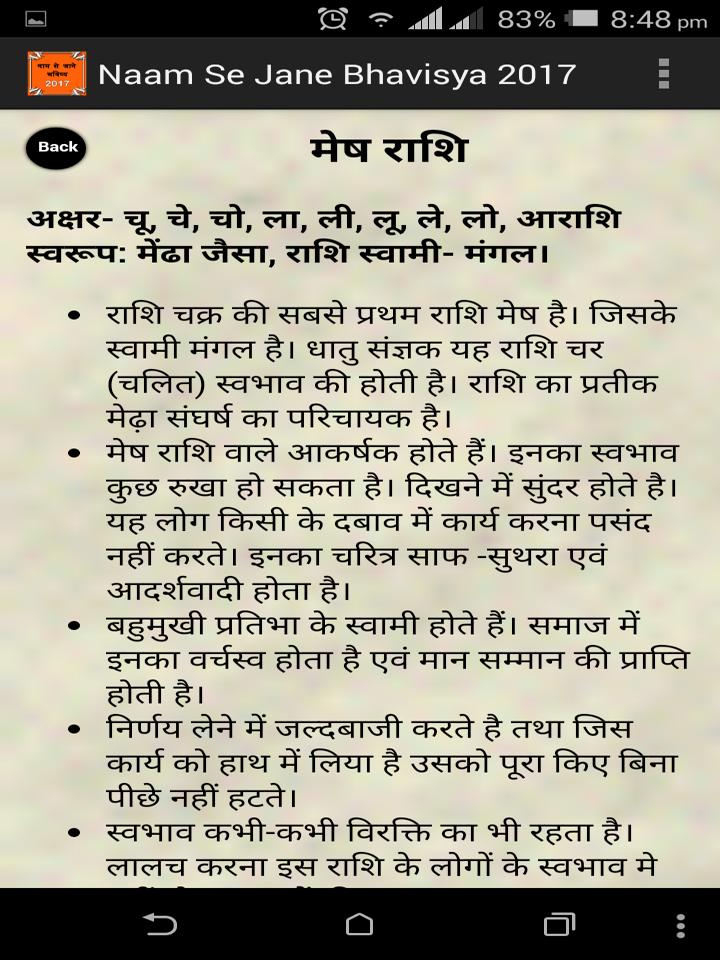 83% 8:48 pm
नाम से जाने
भविष्य
2017
Naam Se Jane Bhavisya 2017
Back
मेष राशि
अक्षर- चू, चे, चो, ला, ली, लू, ले, लो, आराशि
स्वरूप: मेंढा जैसा, राशि स्वामी- मंगल।
• राशि चक्र की सबसे प्रथम राशि मेष है। जिसके
स्वामी मंगल है। धातु संज्ञक यह राशि चर
(चलित) स्वभाव की होती है। राशि का प्रतीक
मेढ़ा संघर्ष का परिचायक है।
• मेष राशि वाले आकर्षक होते हैं। इनका स्वभाव
कुछ रुखा हो सकता है। दिखने में सुंदर होते है।
यह लोग किसी के दबाव में कार्य करना पसंद
नहीं करते। इनका चरित्र साफ -सुथरा एवं
आदर्शवादी होता है।
• बहुमुखी प्रतिभा के स्वामी होते हैं। समाज में
इनका वर्चस्व होता है एवं मान सम्मान की प्राप्ति
होती है।
• निर्णय लेने में जल्दबाजी करते है तथा जिस
कार्य को हाथ में लिया है उसको पूरा किए बिना
पीछे नहीं हटते।
• स्वभाव कभी-कभी विरक्ति का भी रहता है।
लालच करना इस राशि के लोगों के स्वभाव मे